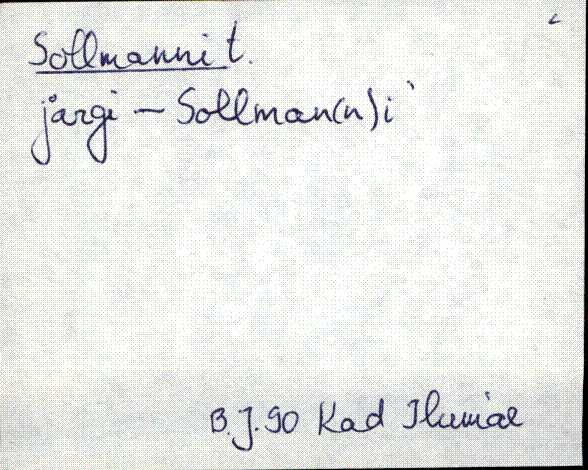 Sollmanni t.
järgi – Sollman(n)i`
B.J. 90 Kad Ilumäe